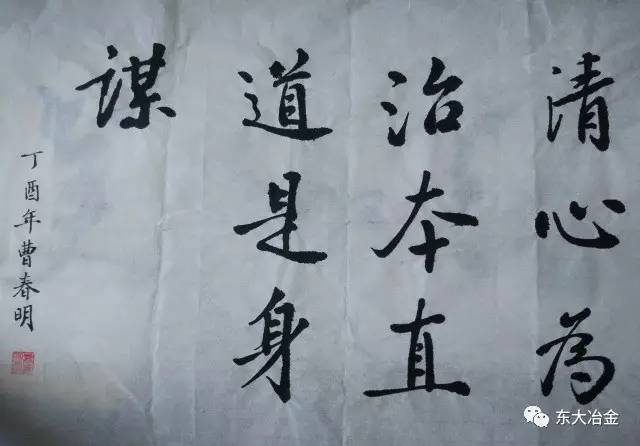 清心为
治本直
道是身
谋
丁酉年曹春明
东大冶金